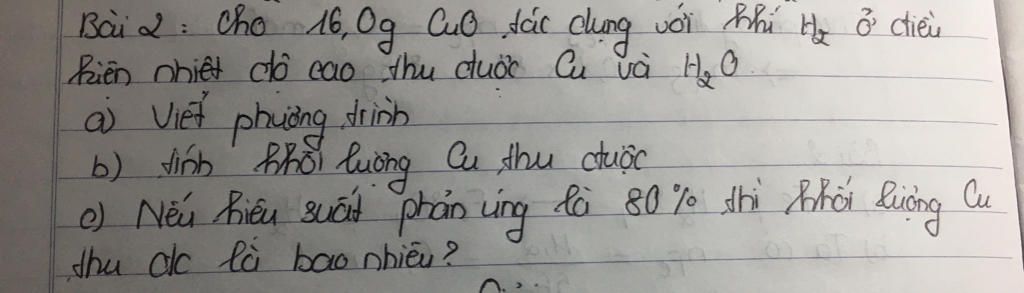 Bài 2: Cho 16,0g CuO tác dụng với khí H₂ ở điều
kiện nhiệt độ cao thu được Cu và H₂O.
a) Viết phương trình
b) tính khối lượng Cu thu được
c) Nếu hiệu suất phản ứng là 80% thì khối lượng Cu
thu đc là bao nhiêu?